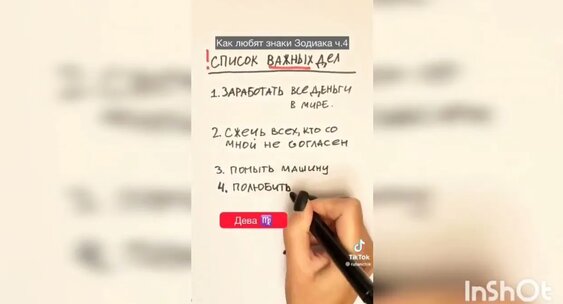 Как любят знаки Зодиака ч.4
!СПИСОК ВАЖНЫХ ДЕЛ
1. ЗАРАБОТАТЬ ВСЕ ДЕНЬГИ
В МИРЕ.
2. СЖЕЧЬ ВСЕХ, КТО СО
МНОЙ НЕ СОГЛАСЕН
3. ПОМЫТЬ МАШИНУ
4. ПОЛЮБИТЬ
Дева ♍
TikTok
InShOt